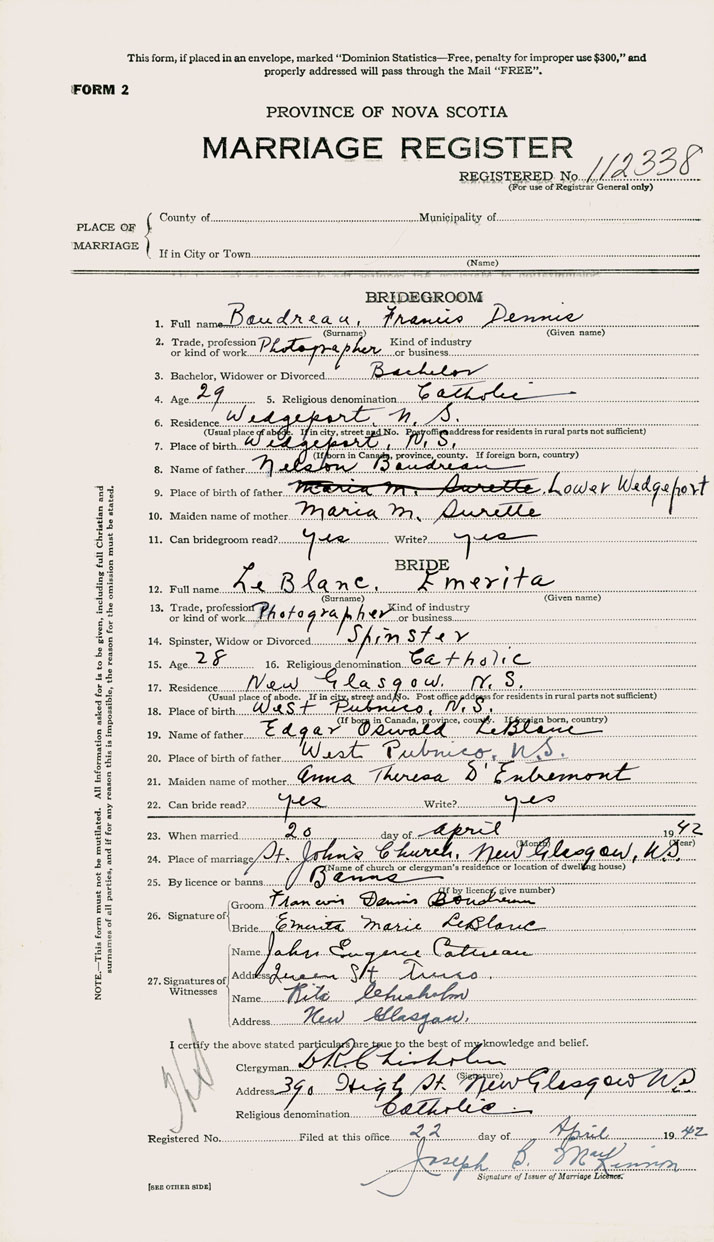 This form, if placed in an envelope, marked "Dominion Statistics—Free, penalty for improper use $300," and
properly addressed will pass through the Mail "FREE".
FORM 2
PROVINCE OF NOVA SCOTIA
MARRIAGE REGISTER
REGISTERED No. 112338
(For use of Registrar General only)
PLACE OF MARRIAGE
County of Municipality of
If in City or Town
(Name)
BRIDEGROOM
1. Full name Boudreau, Francis Dennis
(Surname) (Given name)
2. Trade, profession or kind of work Photographer Kind of industry or business
3. Bachelor, Widower or Divorced Bachelor
4. Age 29 5. Religious denomination Catholic
6. Residence Wedgeport, N.S.
(Usual place of abode. If in city, street and No. Post office address for residents in rural parts not sufficient)
7. Place of birth Wedgeport, N.S.
(If born in Canada, province, county. If foreign born, country)
8. Name of father Nelson Boudreau
9. Place of birth of father Maria M. Surette Lower Wedgeport
10. Maiden name of mother Maria M. Surette
11. Can bridegroom read? yes Write? yes
BRIDE
12. Full name LeBlanc, Emerita
(Surname) (Given name)
13. Trade, profession or kind of work Photographer Kind of industry or business
14. Spinster, Widow or Divorced Spinster
15. Age 28 16. Religious denomination Catholic
17. Residence New Glasgow. N.S.
(Usual place of abode. If in city, street and No. Post office address for residents in rural parts not sufficient)
18. Place of birth West Pubnico, N.S.
(If born in Canada, province, county. If foreign born, country)
19. Name of father Edgar Oswald LeBlanc
20. Place of birth of father West Pubnico, N.S.
21. Maiden name of mother Anna Theresa D'Entremont
22. Can bride read? yes Write? yes
23. When married 20 day of April 1942
(Month) (Year)
24. Place of marriage St. John's Church, New Glasgow, N.S.
(Name of church or clergyman's residence or location of dwelling house)
25. By licence or banns Banns
(If by licence, give number)
26. Signature of
Groom Francis Dennis Boudreau
Bride Emerita Marie LeBlanc
27. Signatures of Witnesses
Name John Eugene
Address Queen St Truro.
Name Rita Chisholm
Address New Glasgow.
I certify the above stated particulars are true to the best of my knowledge and belief.
Clergyman D R Chisholm
(Signature)
Address 390 High St. New Glasgow N.S.
Religious denomination Catholic
Registered No. Filed at this office 22 day of April 1942
Joseph B. MacKinnon
Signature of Issuer of Marriage Licence.
[SEE OTHER SIDE]
NOTE.—This form must not be mutilated. All information asked for is to be given, including full Christian and
surnames of all parties, and if for any reason this is impossible, the reason for the omission must be stated.